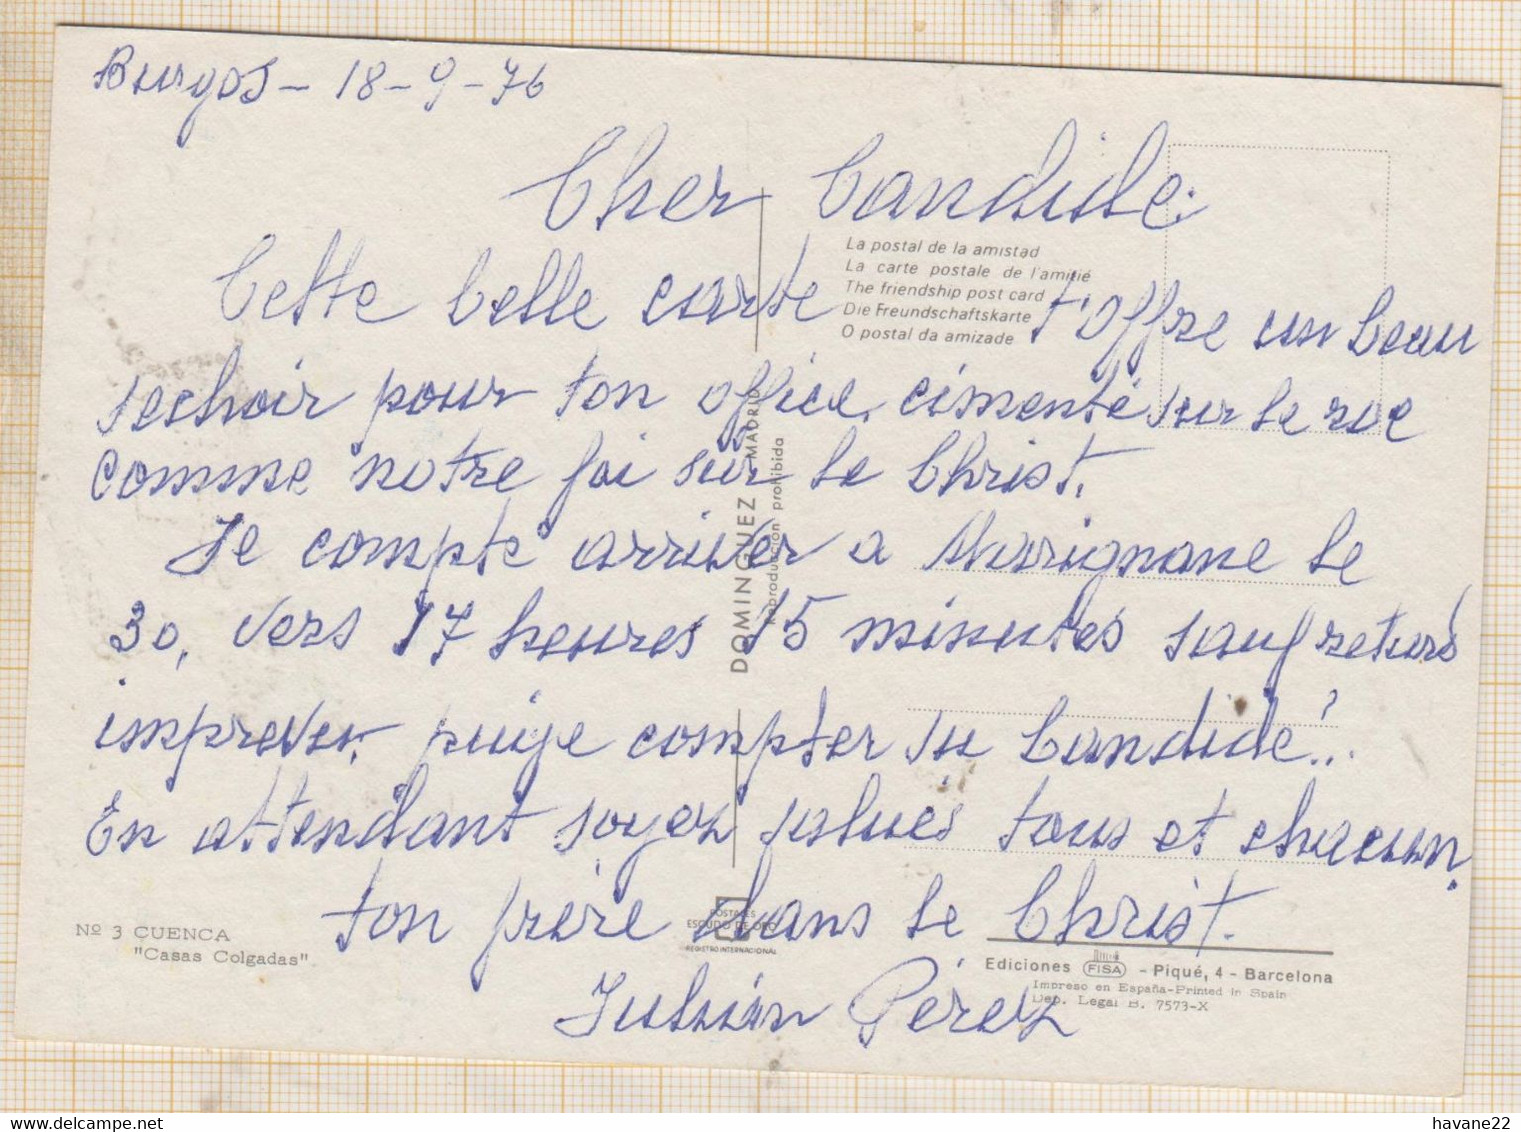 Burgos - 18-9-76
Cher Candide:
La postal de la amistad
La carte postale de l'amitié
The friendship post card
Die Freundschaftskarte
O postal da amizade
Cette belle carte t'offre un beau
sechoir pour ton office, cimenté sur le roc
comme notre foi sur le Christ.
Je compte arriver a Marignane le
30, vers 17 heures 15 minutes sauf retard
imprevu, puije compter su Candide?..
En attendant soyez salués tous et chacun,
ton frère dans le Christ.
Julián Pérez
DOMINGUEZ - MADRID
Reproducción prohibida
Nº 3 CUENCA
"Casas Colgadas"
POSTALES
ESCUDO DE ORO
REGISTRO INTERNACIONAL
Ediciones FISA - Piqué, 4 - Barcelona
Impreso en España-Printed in Spain
Dep. Legal B. 7573-X
havane22